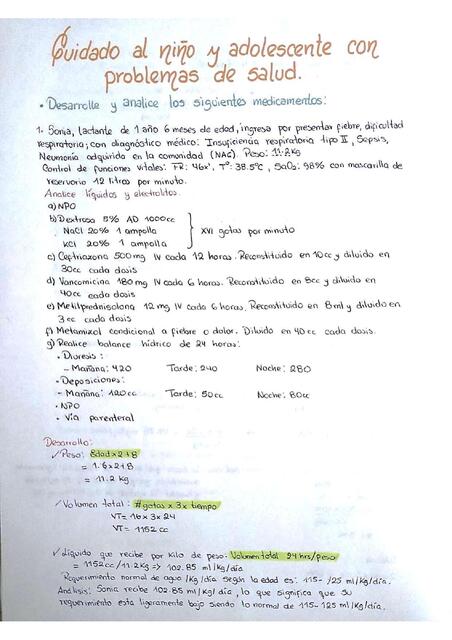 Cuidado al niño y adolescente con
problemas de salud.
• Desarrolle y analice los siguientes medicamentos:
1. Sonia, lactante de 1 año 6 meses de edad, ingresa por presentar fiebre, dificultad
respiratoria; con diagnóstico médico: Insuficiencia respiratoria tipo II, Sepsis,
Neumonía adquirida en la comunidad (NAC). Peso: 11.2Kg
Control de funciones vitales: FR: 46x', T°: 38.5°C, SaO2: 98% con mascarilla de
reservorio 12 litros por minuto.
Analice líquidos y electrolitos.
a) NPO
b) Dextrosa 5% AD 1000cc
NaCl 20% 1 ampolla
KCl 20% 1 ampolla
XVI gotas por minuto
c) Ceftriaxona 500mg IV cada 12 horas. Reconstituido en 10cc y diluido en
30cc cada dosis
d) Vancomicina 180mg IV cada 6 horas. Reconstituido en 8cc y diluido en
40cc cada dosis
e) Metilprednisolona 12 mg IV cada 6 horas. Reconstituido en 8ml y diluido en
3cc cada dosis
f) Metamizol condicional a fiebre o dolor. Diluido en 40cc cada dosis.
g) Realice balance hídrico de 24 horas:
• Diuresis:
- Mañana: 420 Tarde: 240 Noche: 280
• Deposiciones:
- Mañana: 120cc Tarde: 50cc Noche: 80cc
• NPO
• Vía parenteral
Desarrollo:
✓ Peso: Edad x 2 + 8
= 1.6 x 2 + 8
= 11.2 Kg
✓ Volumen total: #gotas x 3 x tiempo
VT= 16 x 3 x 24
VT= 1152 cc
✓ Líquido que recibe por Kilo de peso: Volumen total 24 hrs/peso
= 1152cc/11.2Kg => 102.85 ml/kg/día
Requerimiento normal de agua /Kg/día según la edad es: 115-125 ml/Kg/día.
Análisis: Sonia recibe 102.85 ml/Kg/día, lo que significa que su
requerimiento esta ligeramente bajo siendo lo normal de 115-125 ml/Kg/día.